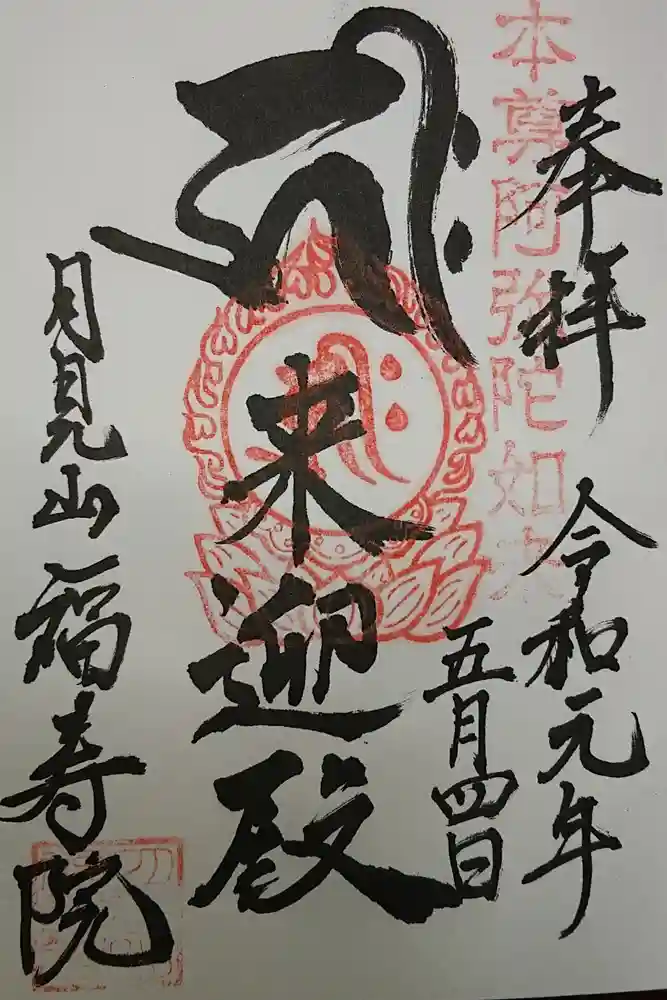 奉拝
令和元年
五月四日
本尊阿弥陀如来
𑖮𑖿𑖨𑖱𑖾
来迎殿
月見山
福寿院